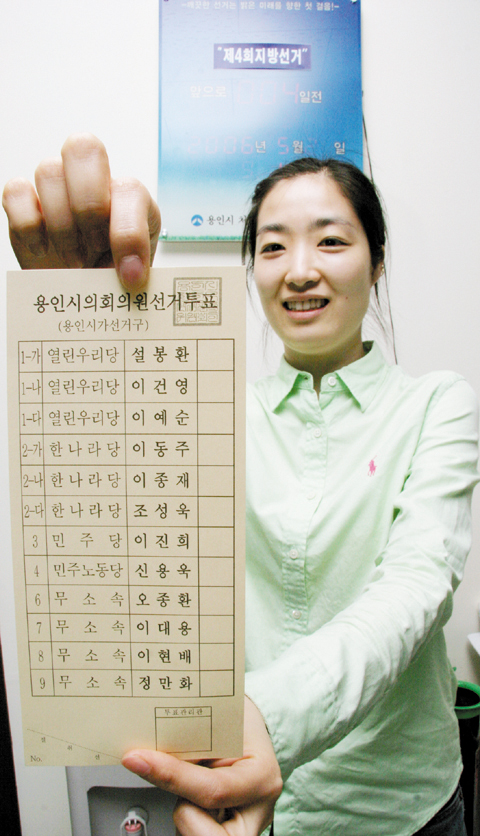 깨끗한 선거는 밝은 미래를 향한 첫 걸음!
"제4회지방선거"
앞으로 일전
2006년 5월 일
용인시
용인시의회의원선거투표
(용인시가선거구)
1-가 열린우리당 설봉환
1-나 열린우리당 이건영
1-다 열린우리당 이예순
2-가 한나라당 이동주
2-나 한나라당 이종재
2-다 한나라당 조성욱
3 민주당 이진희
4 민주노동당 신용욱
6 무소속 오종환
7 무소속 이대용
8 무소속 이현배
9 무소속 정만화
투표관리관
No.